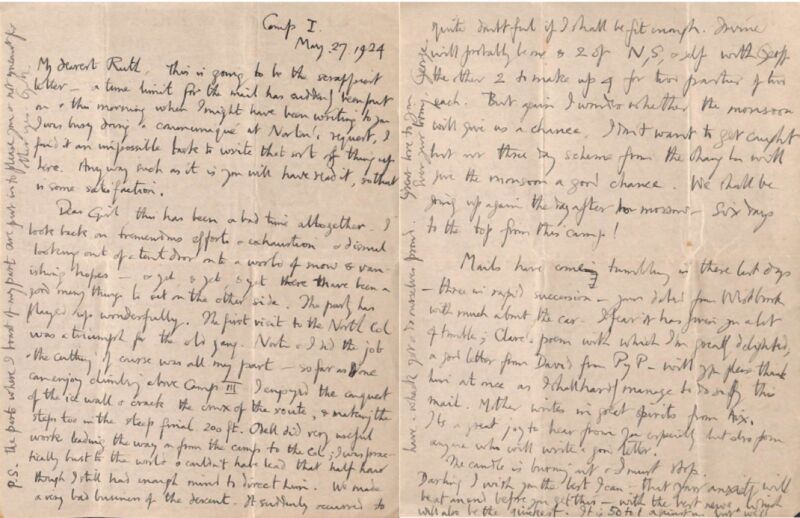 Camp I.
May. 27. 1924
My dearest Ruth, This is going to be the scrappiest
letter – a time limit for the mail has suddenly been put
on & this morning when I might have been writing to you
I was busy doing a communiqué at Norton's request, I
find it an impossible task to write that sort of thing up
here. Anyway such as it is you will have read it, so that
is some satisfaction.
Dear Girl this has been a bad time altogether. I
look back on tremendous efforts & exhaustion & dismal
looking out of a tent door on to a world of snow & van-
ishing hopes – & yet, & yet, & yet there have been a
good many things to set on the other side. The party has
played up wonderfully. The first visit to the North Col
was a triumph for the old gang. Norton & I did the job
& the cutting of course was all my part – so far as one
can enjoy climbing above Camp III I enjoyed the conquest
of the ice wall & crack, the crux of the route, & making the
steps too in the steep final 200 ft. Odell did very useful
work leading the way on from the camp to the Col; I was prac-
tically bust to the world & couldn't have lead that half hour
though I still had enough mind to direct him. We made
a very bad business of the descent. It suddenly occurred to
P.S. the parts where I boast of my part are put in to please you & not meant for
other eyes. G.M.
quite doubtful if I shall be fit enough. Irvine
will probably be one & 2 of N, S, & self with Geoff
the other 2 to make up 4 for two parties of two
each. But again I wonder whether the monsoon
will give us a chance. I don't want to get caught
but our three day scheme from the Chang La will
give the monsoon a good chance. We shall be
going up again the day after tomorrow – Six days
to the top from this camp!
Mails have coming tumbling in these last days
– three in rapid succession – yours dated from Westbrook
with much about the car. I fear it has given you a lot
of trouble; Clare's poem with which I'm greatly delighted,
a good letter from David from PyP – will you please thank
him at once as I shall hardly manage to do so by this
mail. Mother writes in great spirits from Aix.
Its a great joy to hear from you especially but also from
anyone who will write a good letter.
The candle is burning out & I must stop.
Darling I wish you the best I can – that your anxiety will
be at an end before you get this – with the best news. Which
will also be the quickest. It is 50 to 1 against us but we'll
have a whack yet & do ourselves proud. Great love to you.
Ever your loving, George